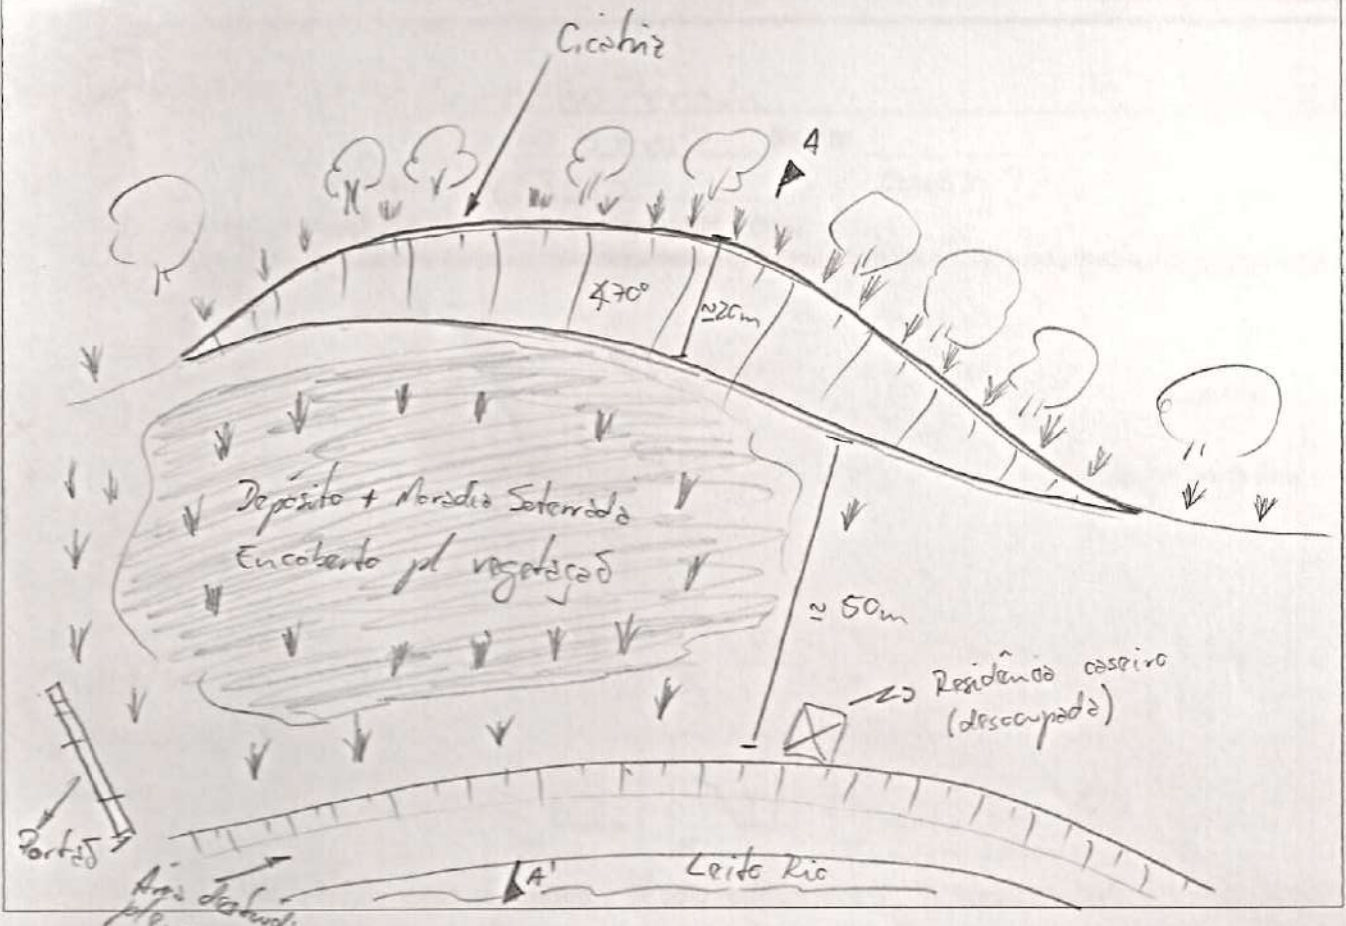 Cicatriz
A
∡70°
≃20m
Depósito + Moradia Soterrada
Encoberto pl vegetação
≃ 50m
Residência caseiro
(desocupada)
Portão
A'
Leito Rio
Área